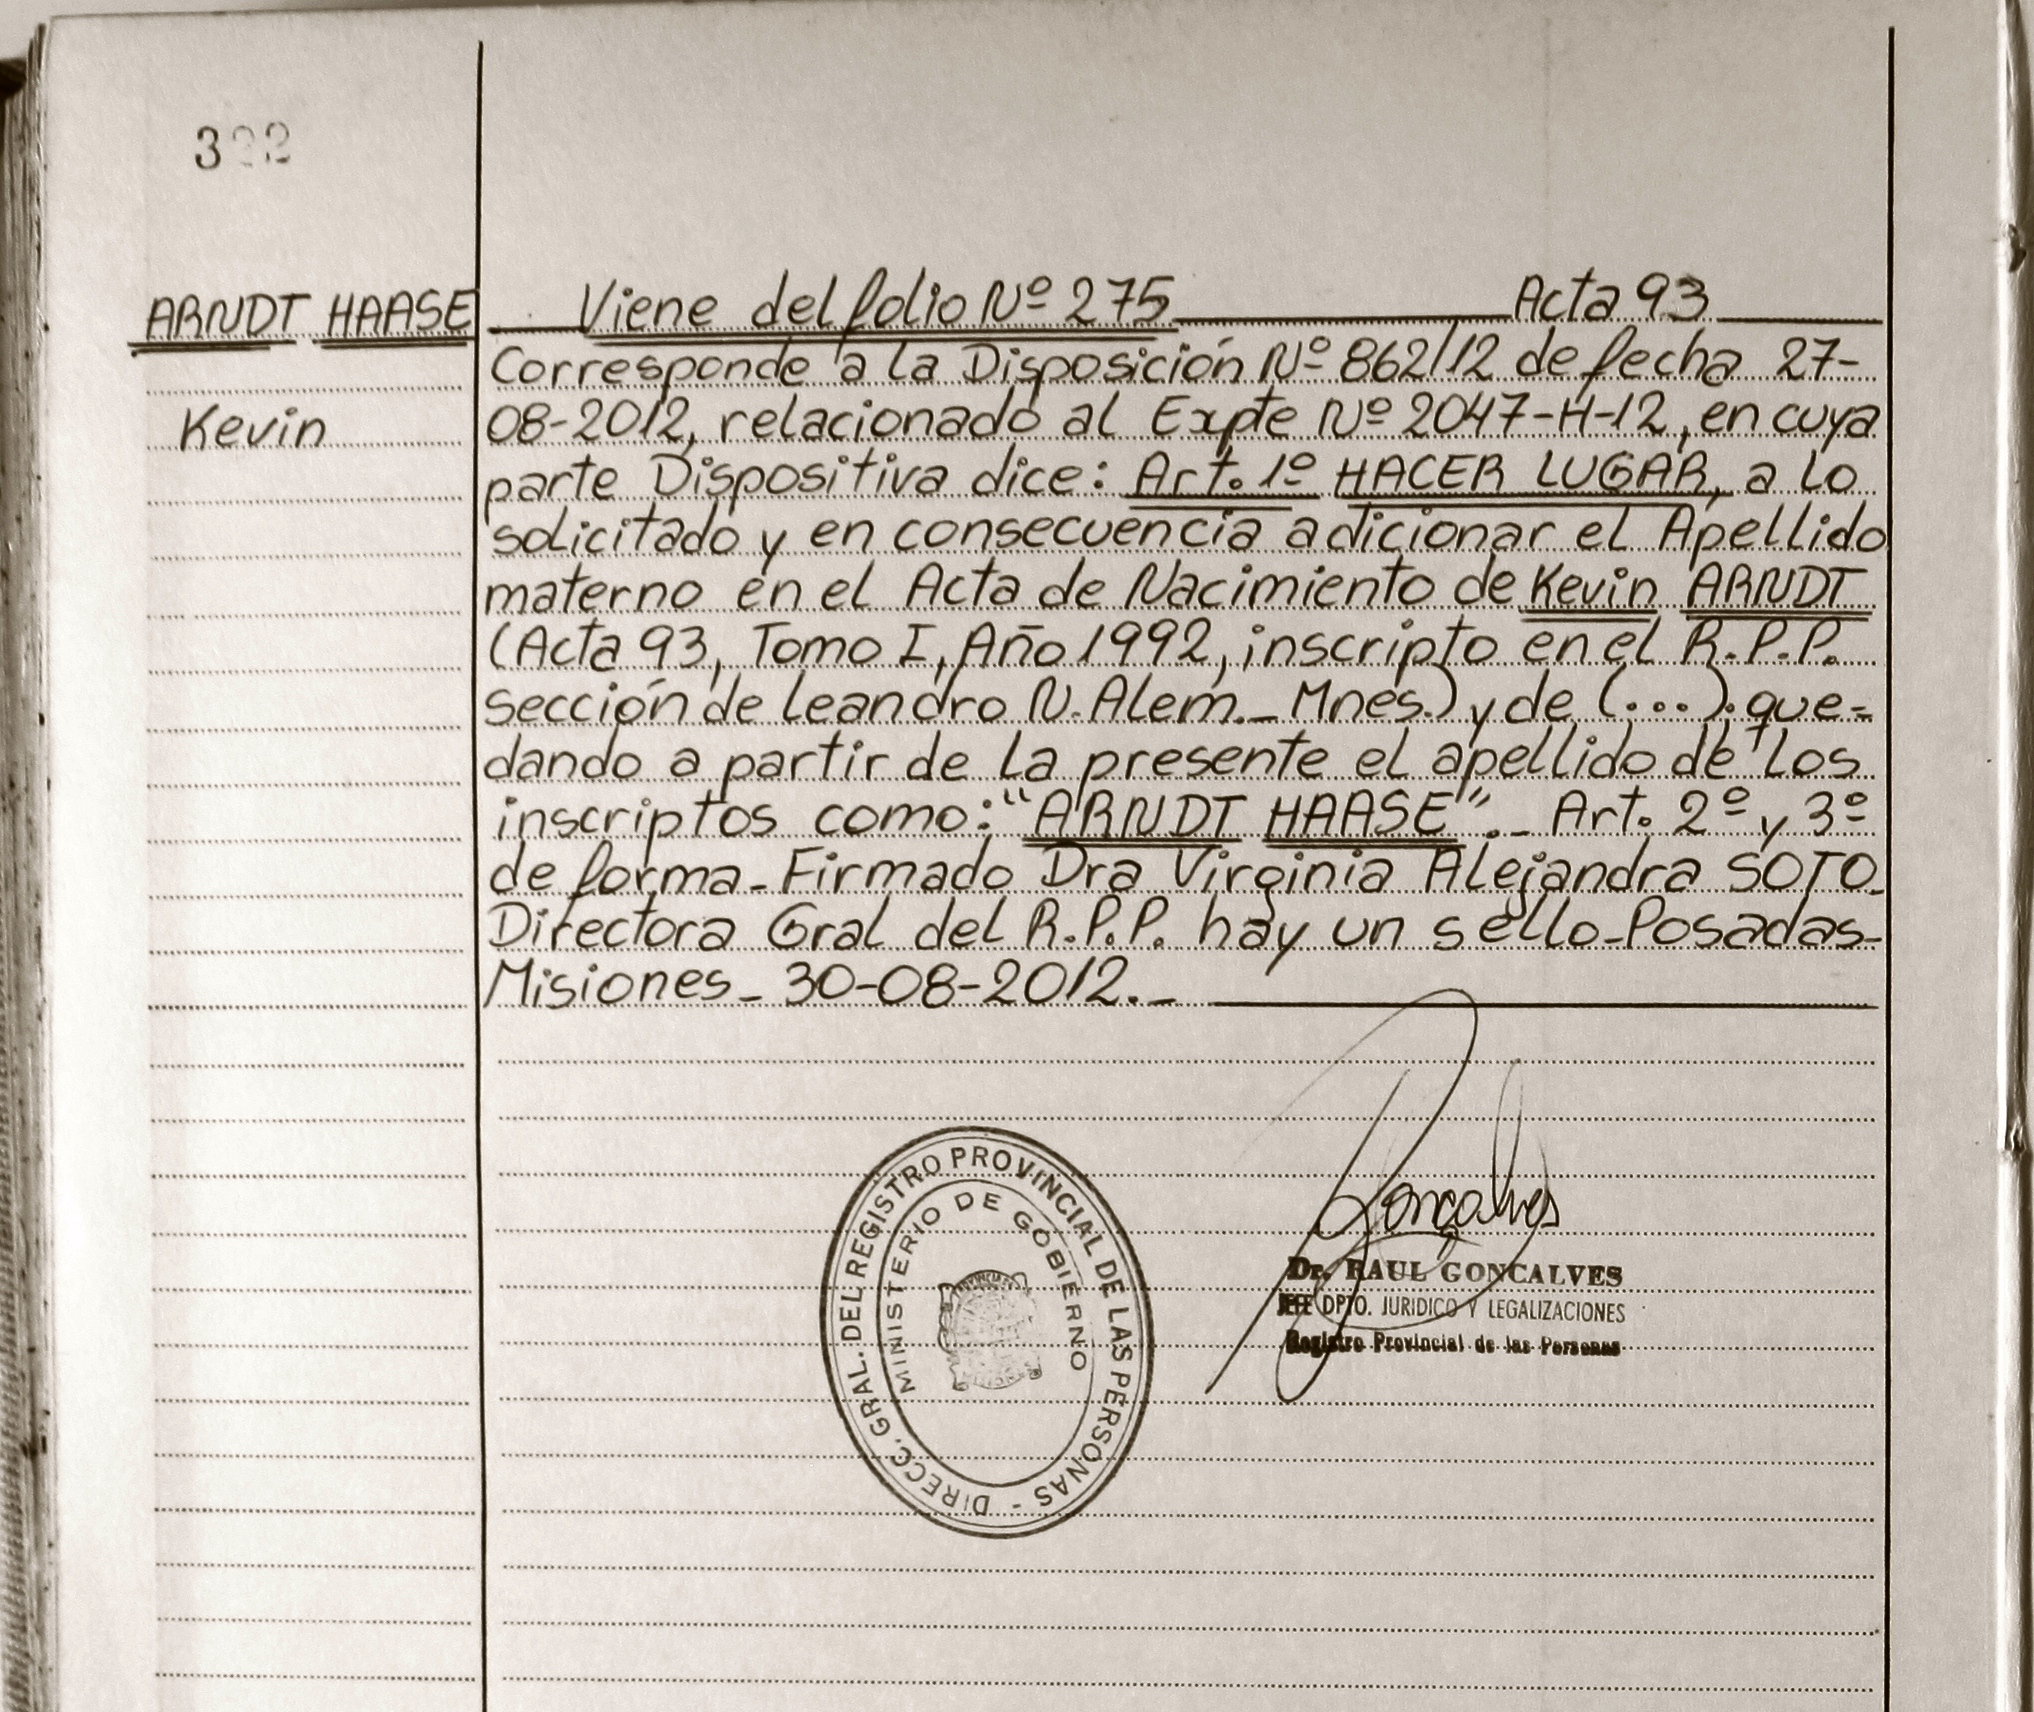 322
ARNDT HAASE
Kevin
Viene del folio Nº 275 Acta 93
Corresponde a la Disposición Nº 862/12 de fecha 27-
08-2012, relacionado al Expte Nº 2047-H-12, en cuya
parte Dispositiva dice: Art. 1º HACER LUGAR, a lo
solicitado y en consecuencia adicionar el Apellido
materno en el Acta de Nacimiento de Kevin ARNDT
(Acta 93, Tomo I, Año 1992, inscripto en el R.P.P.
sección de Leandro N. Alem._ Mnes.) y de (...). que-
dando a partir de la presente el apellido de los
inscriptos como: "ARNDT HAASE"._ Art. 2º y 3º
de forma_ Firmado Dra Virginia Alejandra SOTO_
Directora Gral del R.P.P. hay un sello_Posadas_
Misiones_ 30-08-2012._
DIRECC. GRAL. DEL REGISTRO PROVINCIAL DE LAS PERSONAS -
MINISTERIO DE GOBIERNO
Gonçalves
Dr. RAUL GONCALVES
JEFE DPTO. JURIDICO Y LEGALIZACIONES
Registro Provincial de las Personas